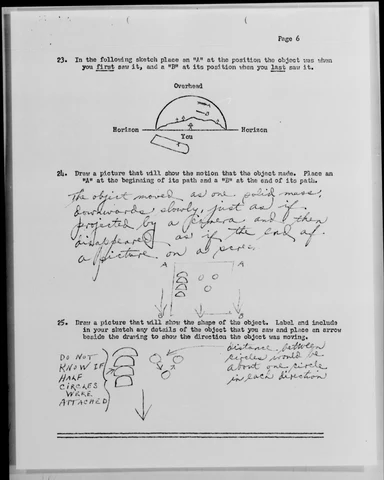 Page 6
23. In the following sketch place an "A" at the position the object was when
you first saw it, and a "B" at its position when you last saw it.
Overhead
Horizon
Horizon
You
24. Draw a picture that will show the motion that the object made. Place an
"A" at the beginning of its path and a "B" at the end of its path.
The object moved as one solid mass,
downwards slowly, just as if
projected by a camera and then
disappeared as if the end of
a picture on a
A A
25. Draw a picture that will show the shape of the object. Label and include
in your sketch any details of the object that you saw and place an arrow
beside the drawing to show the direction the object was moving.
DO NOT
KNOW IF
HALF
CIRCLES
WERE
ATTACHED
distance between
circles would be
about one circle
in each direction